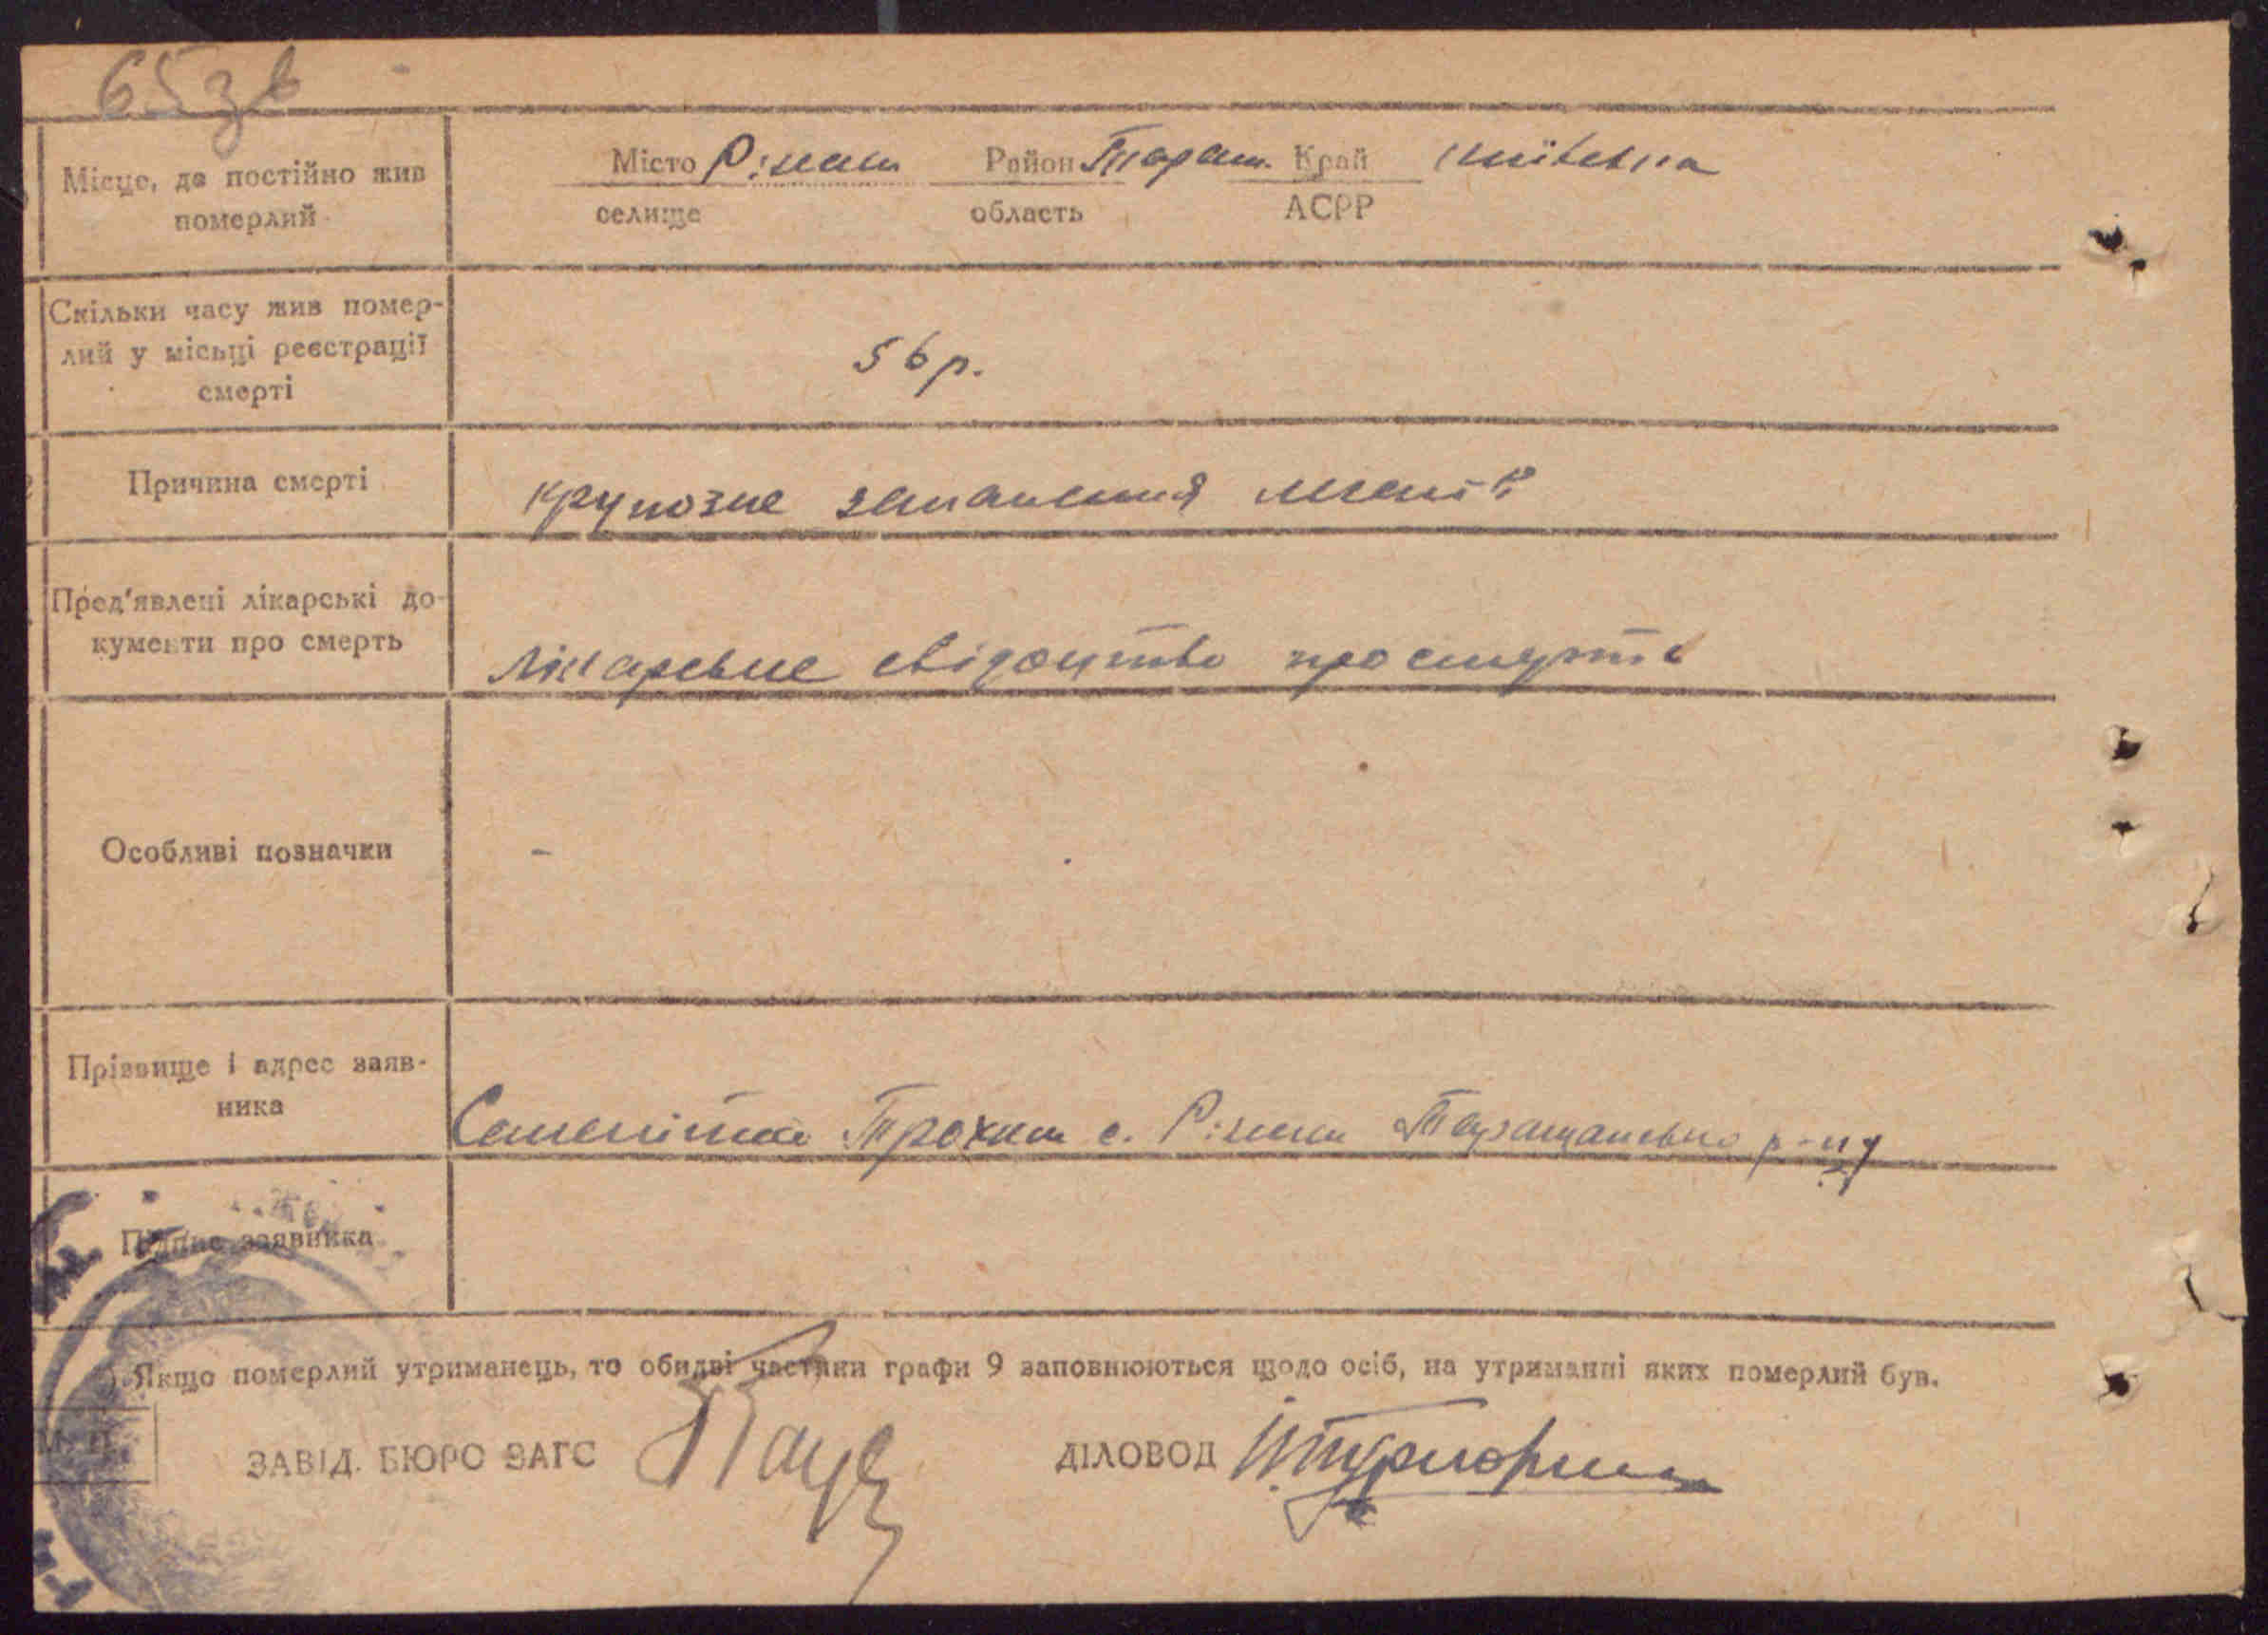 65зв
Місце, де постійно жив
померлий
Місто Район Тараш. Край Київська
селище область АСРР
Скільки часу жив помер-
лий у місьці реєстрації
смерті
56 р.
Причина смерті
крупозне запалення легенів
Пред'явлені лікарські до-
кументи про смерть
Лікарське свідоцтво про смерть
Особливі позначки
-
Прізвище і адрес заяв-
ника
Трохим с. Таращанська р-ну
Підпис заявника
Якщо померлий утриманець, то обидві частини графи 9 заповнюються щодо осіб, на утриманні яких померлий був.
М. П.
ЗАВІД. БЮРО ЗАГС ДІЛОВОД